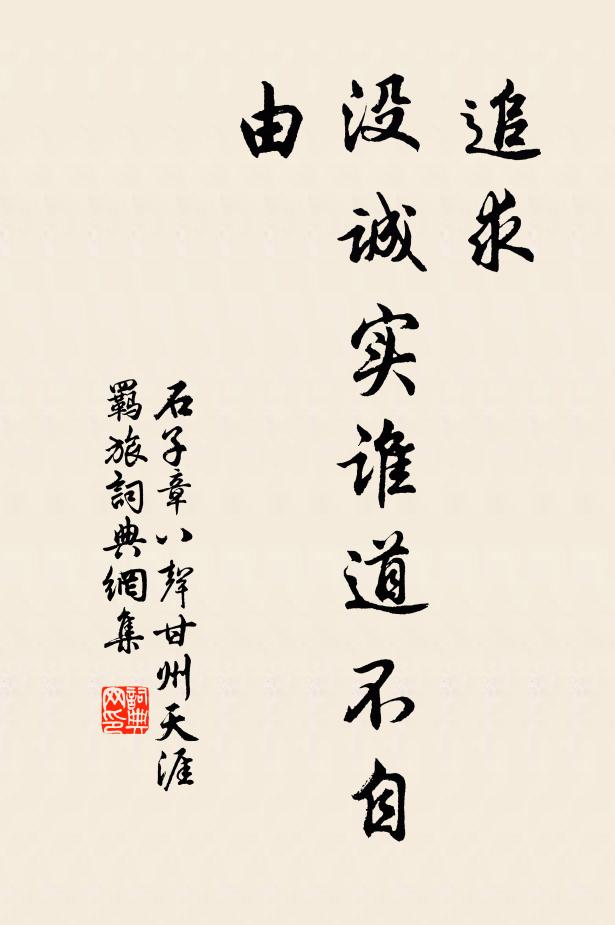 追求
没诚实谁道不自
由
石子章八聲甘州天涯
羁旅詞典網集
詞典
网印